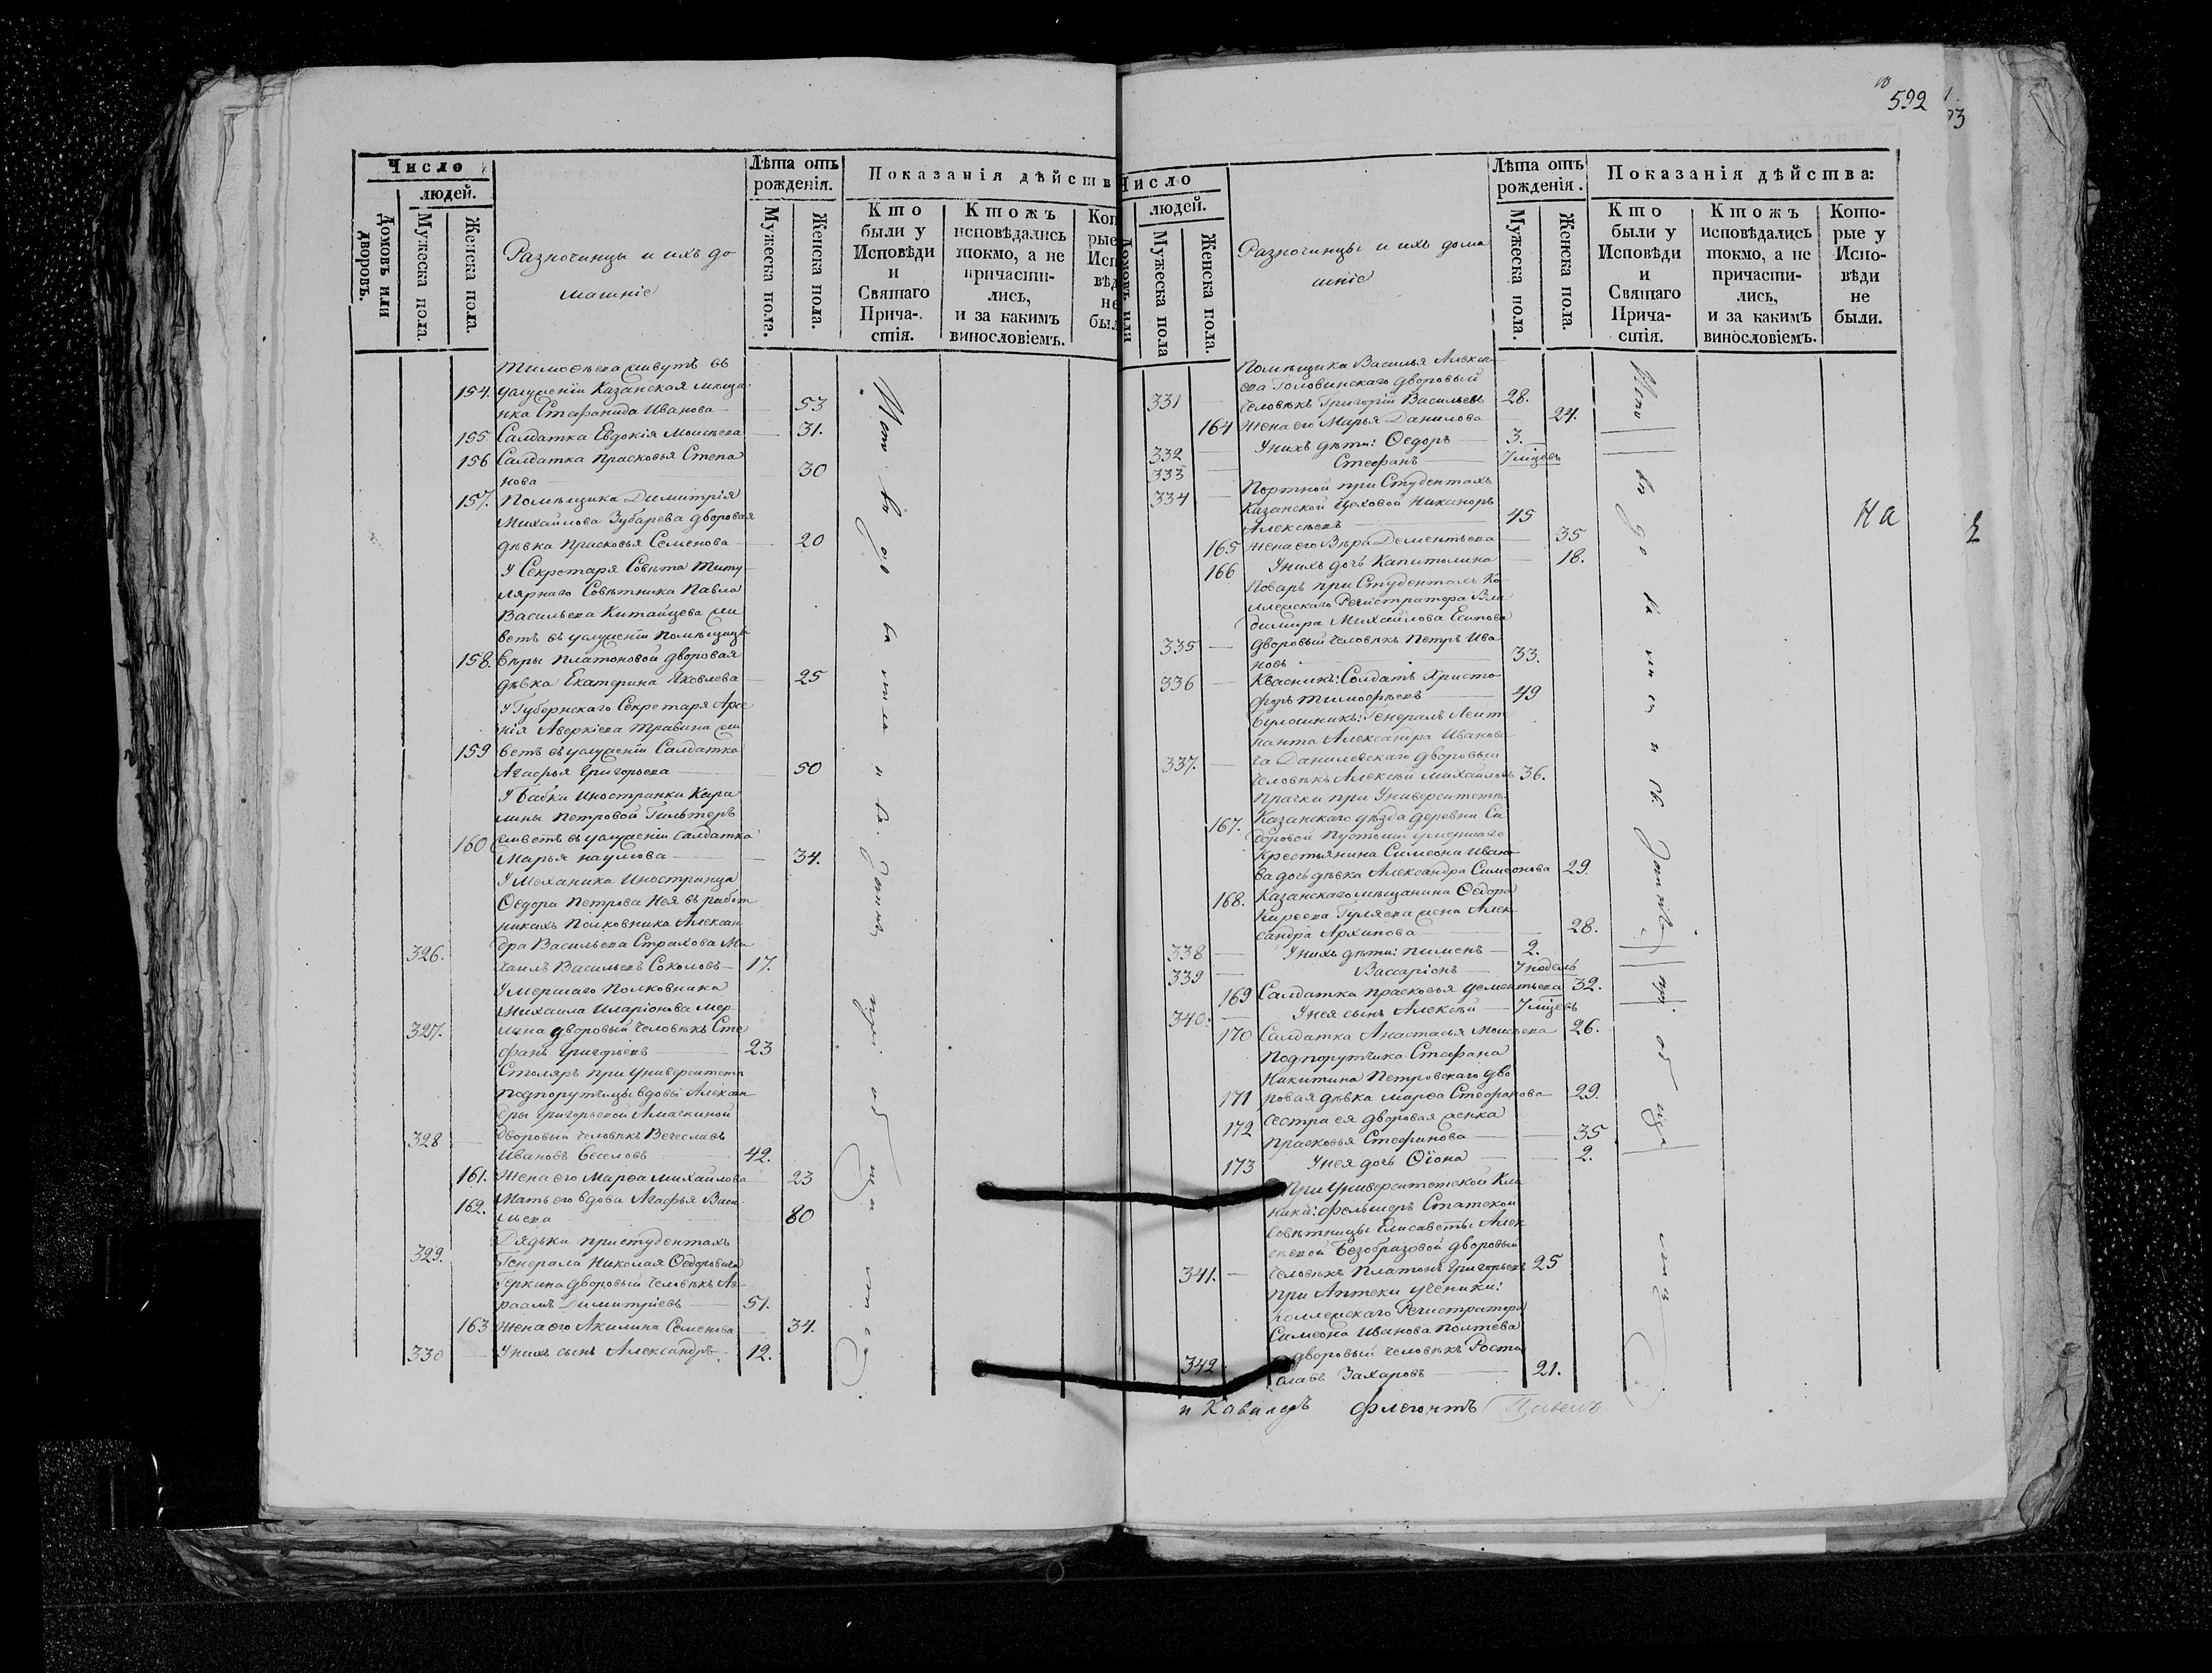 592
Число
людей.
Домовъ или дворовъ.
Мужеска пола.
Женска пола.
Разночинцы и ихъ до
машніе
Лѣта отъ
рожденія.
Мужеска пола.
Женска пола.
Показанія дѣйств
Кто
были у
Исповѣди
и
Святаго
Прича-
стія.
Ктожъ
исповѣдались
токмо, а не
причасти-
лись,
и за какимъ
винословіемъ.
Тимоѳеева живутъ въ
154. услуженіи Казанская мѣща
нка Стефанида Иванова 53
155 Салдатка Евдокія Моисѣева 31.
156 Салдатка Прасковья Степа
нова 30
157. Помѣщика Димитрія
Михайлова Зубарева дворовая
дѣвка Прасковья Семенова 20
У Секретаря Совѣта Титу
лярнаго Совѣтника Павла
Васильева Китайцева жи
ветъ въ услуженіи Помѣщицы
158. Вѣры Платоновой дворовая
дѣвка Екатерина Яковлева 25
У Губернскаго Секретаря Арсе
нія Аверкіева Травина жи
159 ветъ въ услуженіи Салдатка
Агафья Григорьева 50
У бабки Иностранки Каро
лины Петровой Гильтеръ
160 живетъ въ услуженіи Салдатка
Марья Наумова 34.
У Механика Иностранца
Ѳедора Петрова Нея въ работ
никахъ Полковника Алексан
326. дра Васильева Страхова Ми
хаилъ Васильевъ Соколовъ 17.
Умершаго Полковника
Михаила Иларіонова Мер
327. лина дворовый человѣкъ Сте
фанъ Григорьевъ 23
Столяръ при Университетѣ
Подпорутчицы вдовы Алексан
дры Григорьевой Амаскиной
328 дворовый человѣкъ Вечеславъ
Ивановъ Веселовъ 42.
161. Жена его Марѳа Михайлова 23
162. Мать его вдова Агафья Васи
льева 80
Дядьки при студентахъ
329. Генерала Николая Ѳедоровича
Геркина дворовый человѣкъ Ав
раамъ Димитріевъ 51.
163 Жена его Акилина Семенова 34.
330 У нихъ сынъ Александръ 12.
Число
людей.
Мужеска пола
Женска пола.
Разночинцы и ихъ дома
шніе
Лѣта отъ
рожденія.
Мужеска пола.
Женска пола.
Показанія дѣйства:
Кто
были у
Исповѣди
и
Святаго
Прича-
стія.
Ктожъ
исповѣдались
токмо, а не
причасти-
лись,
и за какимъ
винословіемъ.
Кото-
рые у
Испо-
вѣди
не
были.
Помѣщика Василья Алексѣ
ева Головинскаго дворовый
331 человѣкъ Григорій Васильевъ 28.
164 Жена его Марья Данилова 24.
332 У нихъ дѣти: Ѳедоръ 3.
333 Стефанъ 7 мѣцевъ
334 Портной при Студентахъ
Казанской Цеховой Никаноръ
Алексѣевъ 45
165 Жена его Вѣра Дементьева 35
166 У нихъ дочь Капитолина 18.
Поваръ при Студентахъ Ко
ллежскаго Регистратора Вла
димира Михайлова Есипова
335 дворовый человѣкъ Петръ Ива
новъ 33.
336 Квасникъ: Солдатъ Христо
форъ Тимоѳѣевъ 49
Булошникъ: Генералъ Лейте
нанта Александра Иванови
337. ча Данилевскаго дворовый
человѣкъ Алексѣй Михайловъ 36.
Прачки при Университетѣ:
167. Казанскаго уѣзда деревни Си
доровой Пустоши умершаго
Крестьянина Симеона Ивано
ва дочь дѣвка Александра Симеонова 29.
168. Казанскаго мѣщанина Ѳедора
Киреева Гуляева жена Алек
сандра Архипова 28.
338 У нихъ дѣти: Пименъ 2.
339 Вассаріонъ 7 недель
169 Салдатка Прасковья Дементьева 32.
340. У нея сынъ Алексѣй 7 мѣцевъ
170 Салдатка Анастасья Моисѣева 26.
Подпорутчика Стефана
Никитина Петровскаго дво
171 ровая дѣвка Марѳа Стефанова 29.
172 Сестра ея дворовая женка
Прасковья Стефанова 35
173 У нея дочь Ѳіона 2.
При Университетской Кли
никѣ: фельшеръ Статской
Совѣтницы Елисаветы Алек
сѣевой Безобразовой дворовый
341. человѣкъ Платонъ Григорьевъ 25
При Аптеки ученики:
Коллежскаго Регистратора
Симеона Иванова Полтева
342 дворовый человѣкъ Рости
славъ Захаровъ 21.
На
и Кавалеръ Флегонтъ